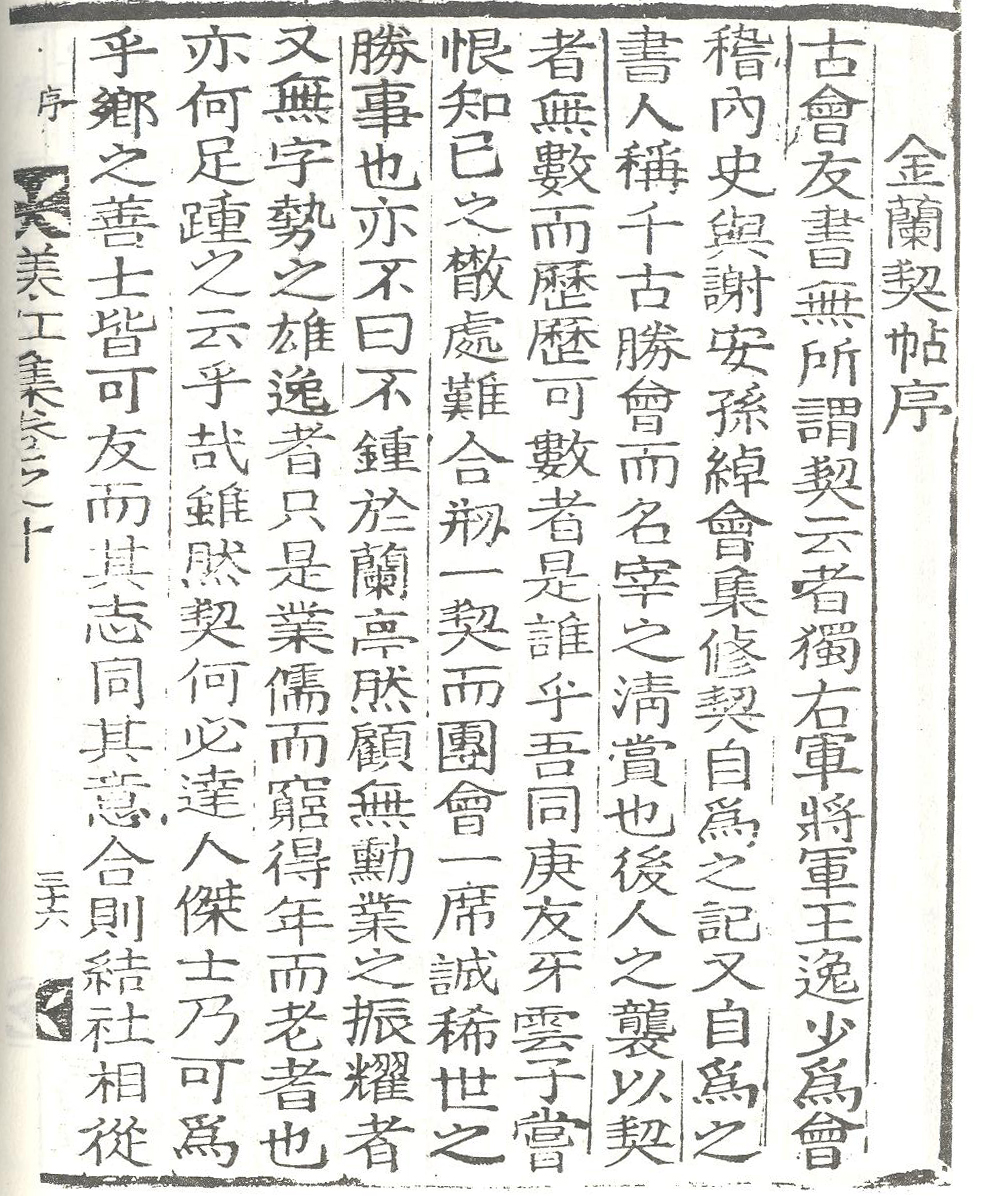 金蘭契帖序
古會友書無所謂契云者獨右軍將軍王逸少爲會
稽內史與謝安孫綽會集修契自爲之記又自爲之
書人稱千古勝會而名宰之淸賞也後人之襲以契
者無數而歷歷可數者是誰乎吾同庚友牙雲子嘗
恨知已之散處難合剏一契而團會一席誠稀世之
勝事也亦不曰不鍾於蘭亭然顧無勳業之振耀者
又無字勢之雄逸者只是業儒而窮得年而老者也
亦何足踵之云乎哉雖然契何必達人傑士乃可爲
乎鄕之善士皆可友而其志同其意合則結社相從
序
美江集卷之十
三十六